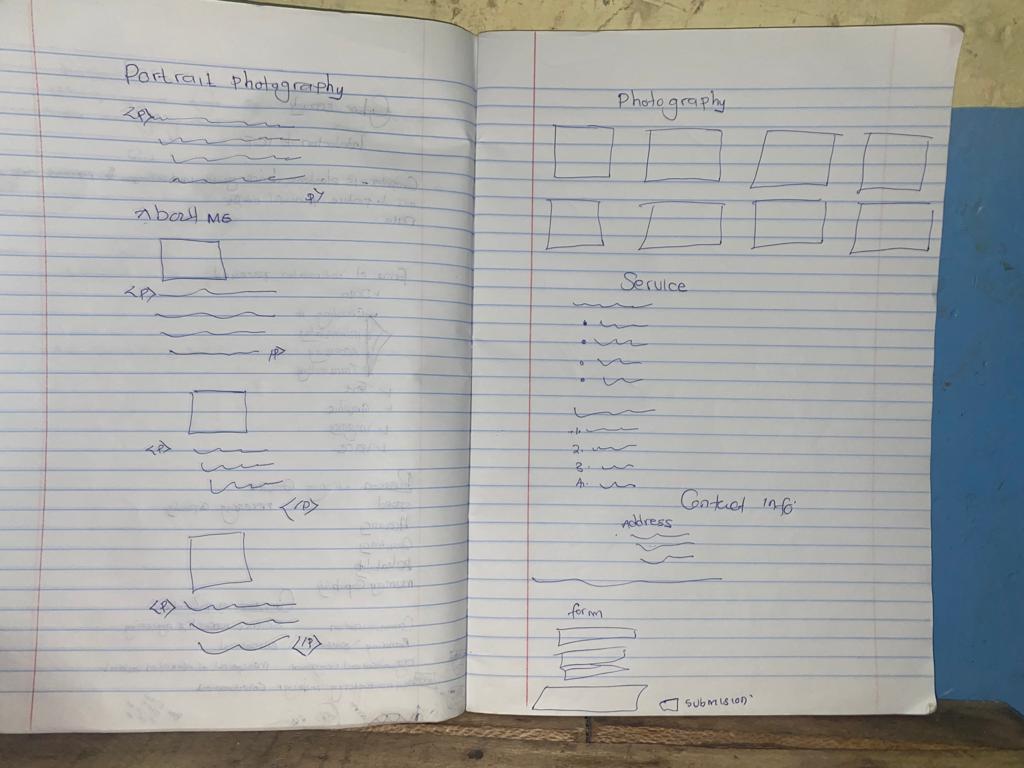 Portrait photography
<P>
P>
About ME
<P>
P>
<P>
<P>
<P>
<P>
Photography
Service
1.
2.
3.
4.
Contact info
Address
form
submission